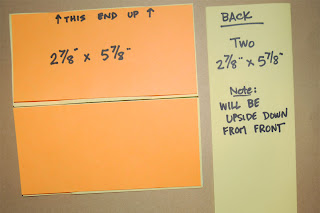 ↑ THIS END UP ↑
2⅞" x 5⅞"
BACK
Two
2⅞" x 5⅞"
Note:
WILL BE
UPSIDE DOWN
FROM FRONT